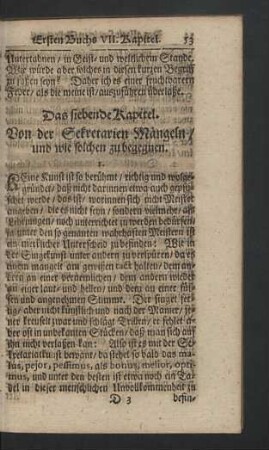 Ersten Buchs VII. Kapitel. 53
Untertahnen / in Geist- und weltlichem Stande.
Wir würde aber solches in diesen kurzen Begrif
zu seyn? Daher ich es einer fruchtbarern
Feder / als die meine ist / auszuführen überlasse.
Das siebende Kapitel.
Von der Sekretarien Mängeln /
und wie solchen zu begegnen.
1.
Keine Kunst ist so berühmt / richtig und wolge-
gründet / daß nicht darinnen etwa auch gepfu-
schet werde / das ist / worinnen sich nicht Meister
angeben / die es nicht seyn / sondern vielmehr / als
Lehrlingen / noch unterrichtet zu werden bedürfen:
ja unter den so genanten wahrhaften Meistern ist
ein merklicher Unterscheid zu befinden: Wie in
der Singekunst unter andern zu verspüren / da es
einem mangelt am gewissen tact halten / dem an-
dern an einer vernemlichen / dem andern wieder
an einer laut- und hellen / und dem an einer
süssen und angenehmen Stimme. Der singet fer-
tig / aber nicht künstlich und nach der Manier / je-
ner kreuset zwar und schlägt Trillen / er fehlet a-
ber oft in unbekanten Stücken / daß man sich auf
ihn nicht verlassen kan: Also ist es mit der Se-
kretariatkunst bewant / da stehet so bald das ma-
lus, pejor, pessimus, als bonus, melior, opti-
mus, und unter den besten ist etwa noch ein Ta-
del in dieser menschlichen Unvollkommenheit zu
D 3 befin-